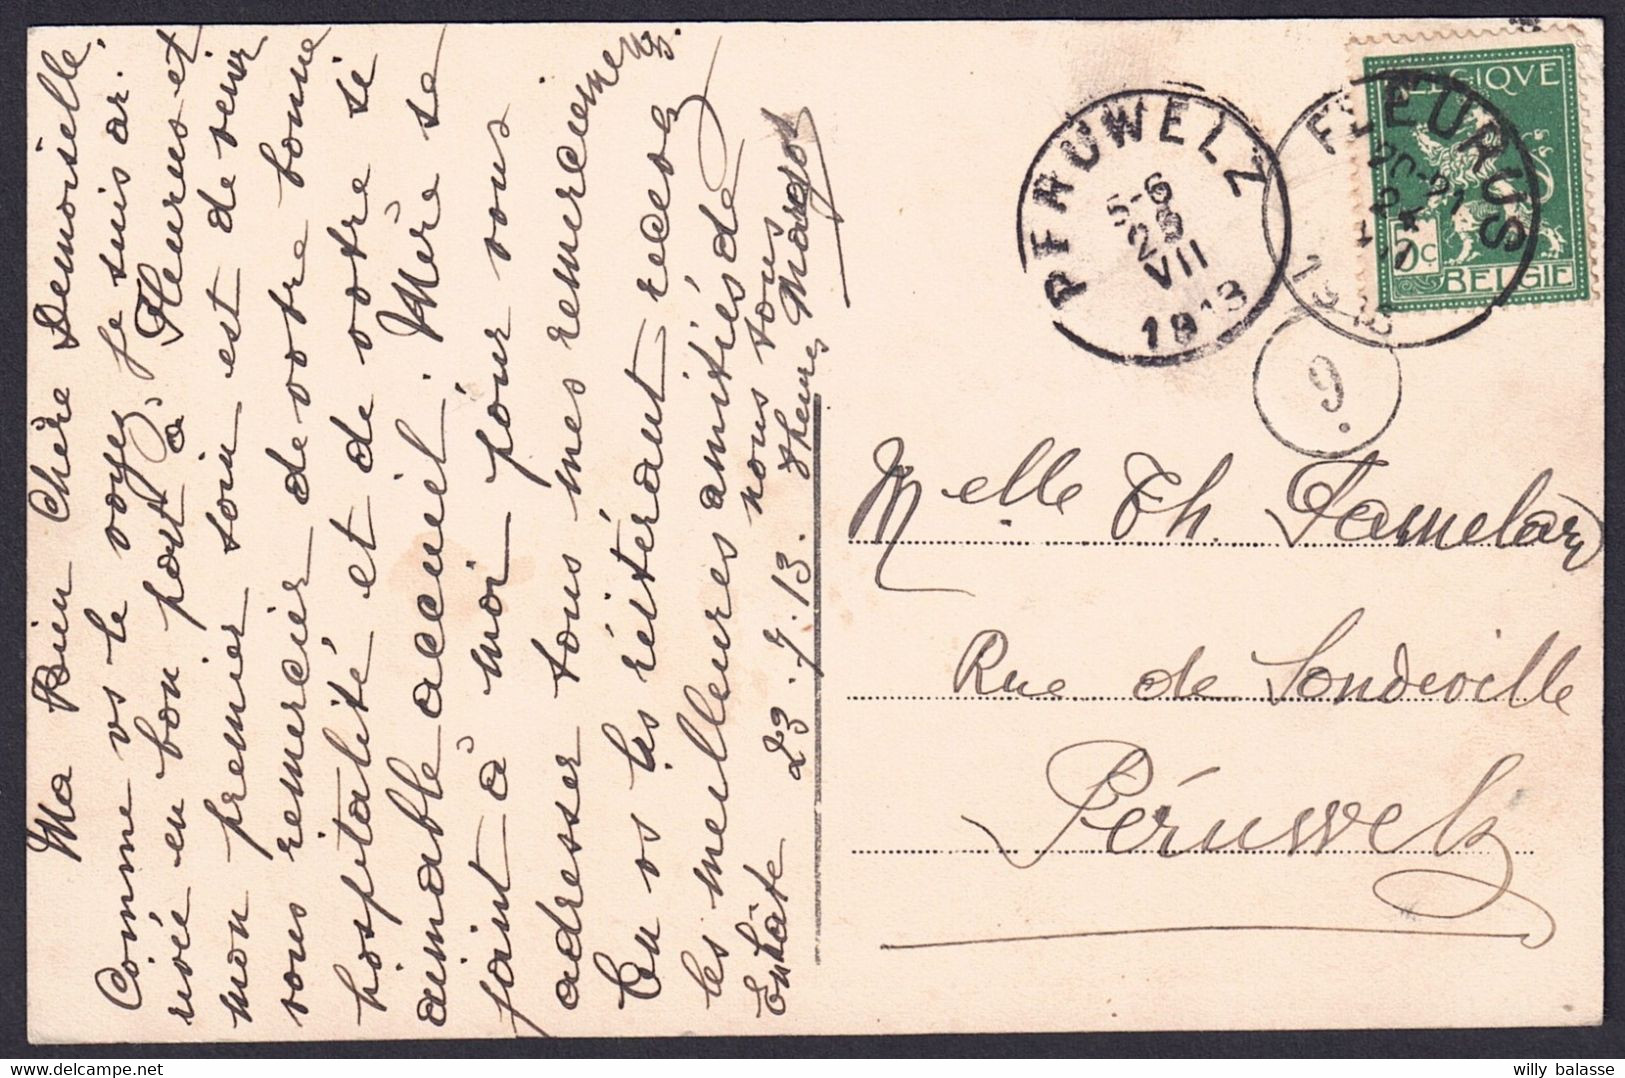 Ma Bien Chère Demoiselle,
Comme vs le voyez je suis ar.
rivée en bon port à Fleurus et
mon premier soin est de venir
vous remercier de votre bonne
hospitalité et de votre si
aimable accueil. Mère se
joint à moi pour vous
adresser tous mes remerciements.
En vs les réitérant recevez
les meilleures amitiés de
nous tous
En hâte 23.7.13. Margot
PERUWELZ
5-6
25
VII
1913
FLEURUS
20-21
24
1913
BELGIQUE
5c
BELGIE
9.
Melle Th. Famelart
Rue de Sondeville
Péruwelz
willy balasse